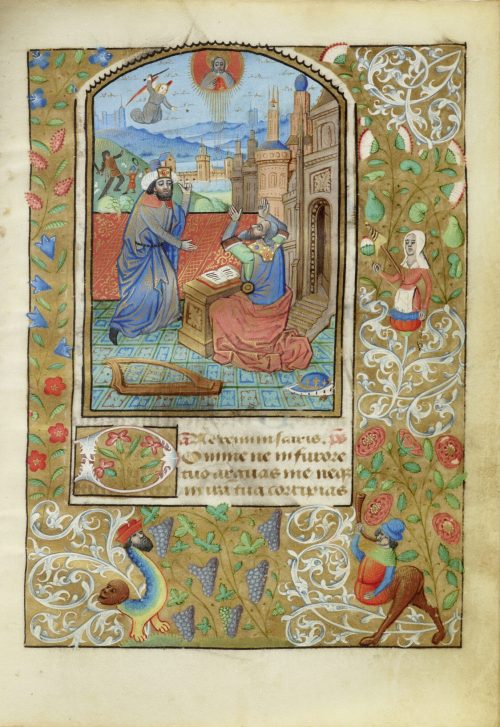 Ne reminiscaris. ps
Domine ne in furore
tuo arguas me neq
in ira tua corripias